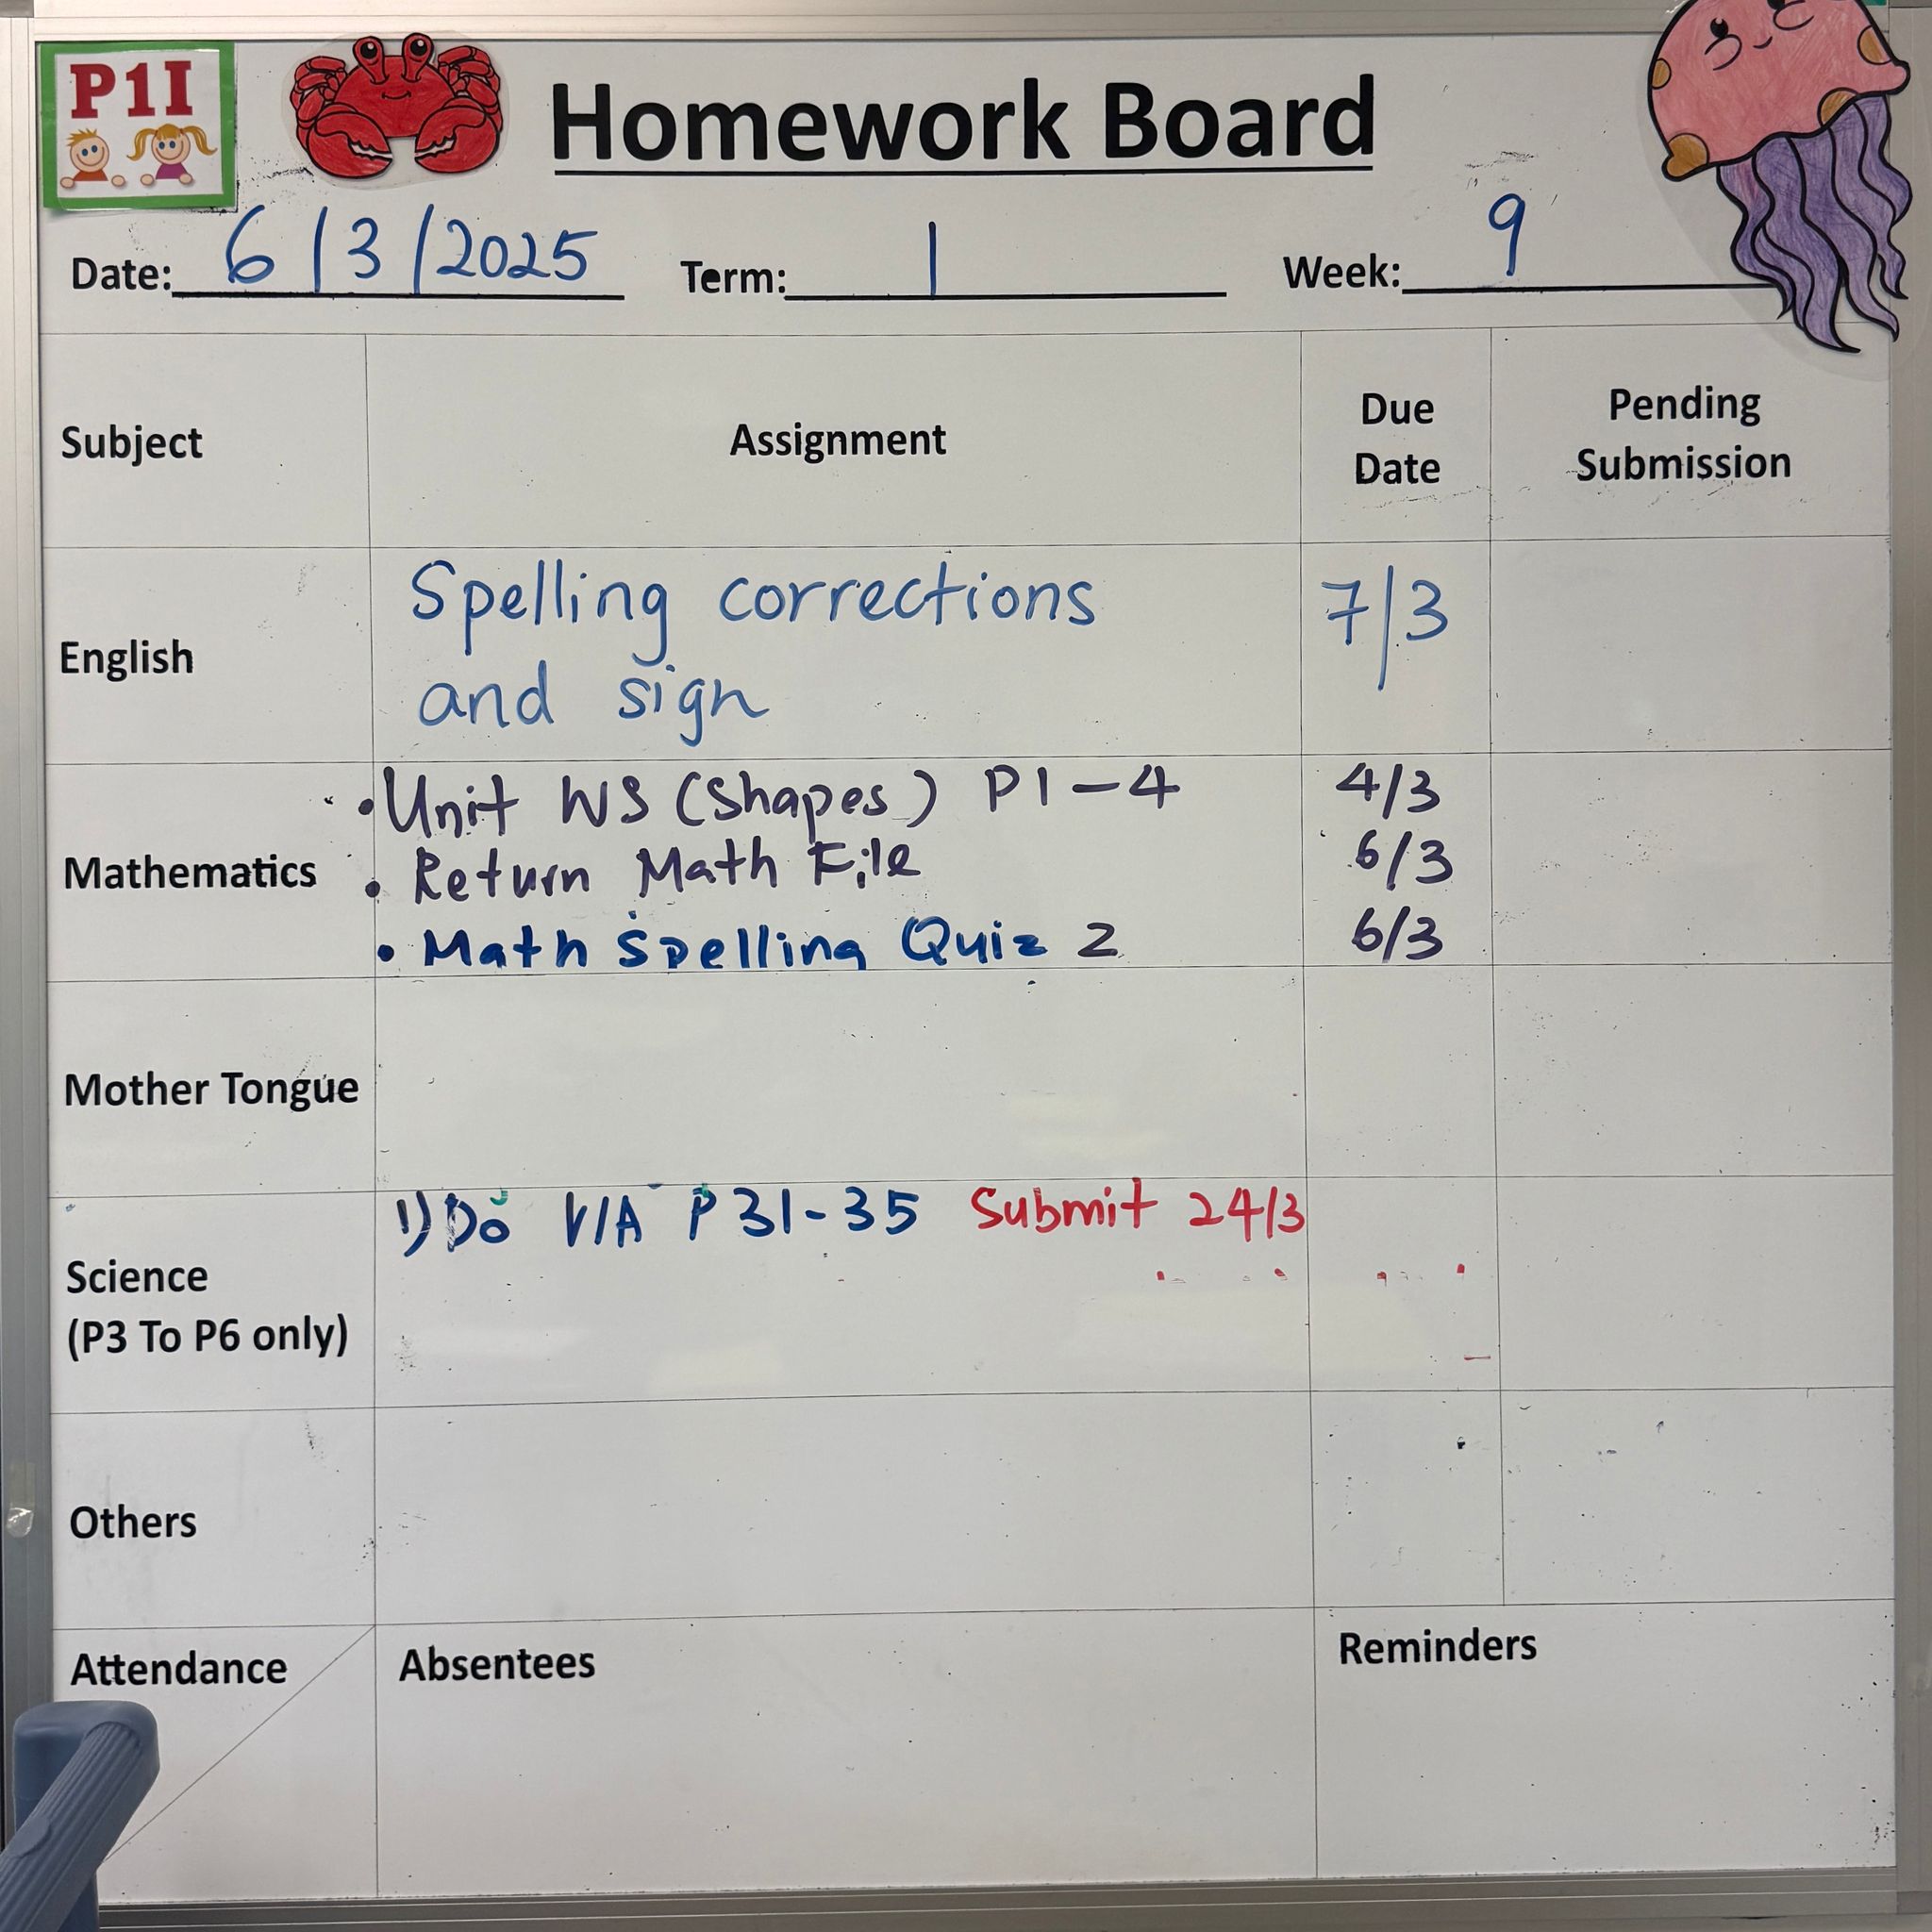 P1I
Homework Board
Date: 6/3/2025 Term: 1 Week: 9
Subject Assignment Due Date Pending Submission
English Spelling corrections 7/3
and sign
Mathematics
• Unit WS (Shapes) P1-4 4/3
• Return Math File 6/3
• Math Spelling Quiz 2 6/3
Mother Tongue
Science
(P3 To P6 only)
1) Do V/A P 31-35 Submit 24/3
Others
Attendance Absentees Reminders